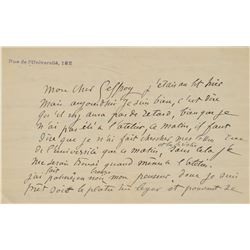 Rue de l'Université, 182
Mon cher Geffroy, j'étais au lit hier
Mais aujourd'hui je suis bien, c'est dire
qu'il n'y aura pas de retard, bien que je
n'ai pas été à l'atelier, ce matin, il faut
dire que je n'ai fait chercher mes lettres rue
de l'Université que ce matin, sans cela je
me serais trouvé quand même à l'atelier.
J'ai
mon penseur, donc je suis
prêt soit le plâtre soit